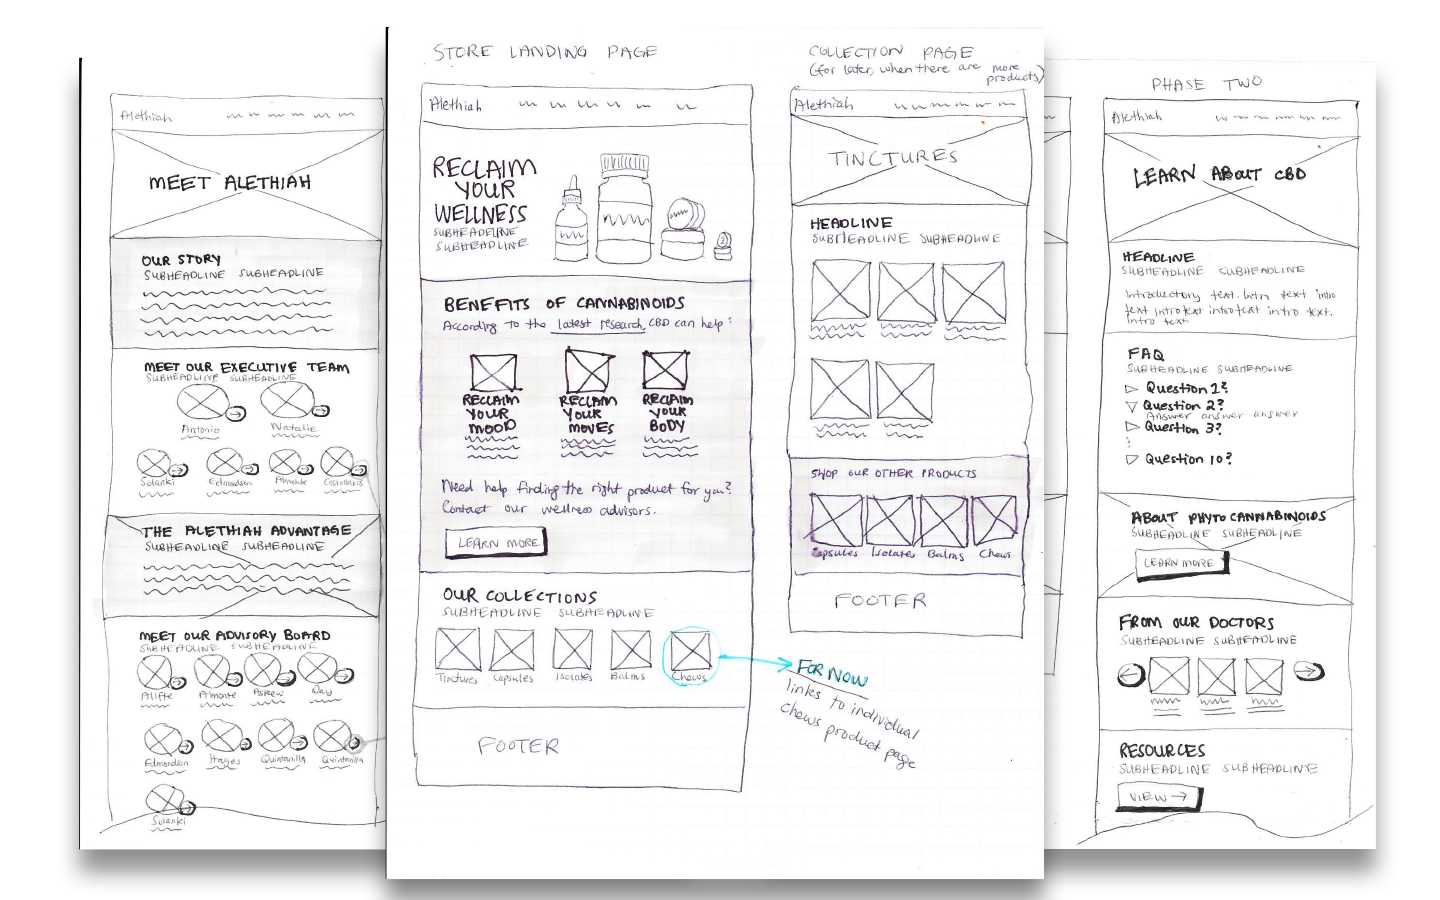 Alethiah
MEET ALETHIAH
OUR STORY
SUBHEADLINE SUBHEADLINE
MEET OUR EXECUTIVE TEAM
SUBHEADLINE SUBHEADLINE
Antonio
Natalie
Solanki
Edmondson
Almonte
THE ALETHIAH ADVANTAGE
SUBHEADLINE SUBHEADLINE
MEET OUR ADVISORY BOARD
SUBHEADLINE SUBHEADLINE
Almonte
Askew
Day
Edmondson
Hayes
Quintanilla
Quintanilla
Solanki
STORE LANDING PAGE
Alethiah
RECLAIM
YOUR
WELLNESS
SUBHEADLINE
SUBHEADLINE
BENEFITS OF CANNABINOIDS
According to the latest research, CBD can help:
RECLAIM
YOUR
MOOD
RECLAIM
YOUR
MOVES
RECLAIM
YOUR
BODY
Need help finding the right product for you?
Contact our wellness advisors.
LEARN MORE
OUR COLLECTIONS
SUBHEADLINE SUBHEADLINE
Tinctures
Capsules
Isolates
Balms
Chews
FOR NOW
links to individual
chews product page
FOOTER
COLLECTION PAGE
(for later, when there are more
products)
Alethiah
TINCTURES
HEADLINE
SUBHEADLINE SUBHEADLINE
SHOP OUR OTHER PRODUCTS
Capsules
Isolates
Balms
Chews
FOOTER
PHASE TWO
Alethiah
LEARN ABOUT CBD
HEADLINE
SUBHEADLINE SUBHEADLINE
Introductory text. Intro text intro
text intro text intro text intro text.
Intro text
FAQ
SUBHEADLINE SUBHEADLINE
Question 1?
Question 2?
Answer answer answer
Question 3?
Question 10?
ABOUT PHYTOCANNABINOIDS
SUBHEADLINE SUBHEADLINE
LEARN MORE
FROM OUR DOCTORS
SUBHEADLINE SUBHEADLINE
RESOURCES
SUBHEADLINE SUBHEADLINE
VIEW →